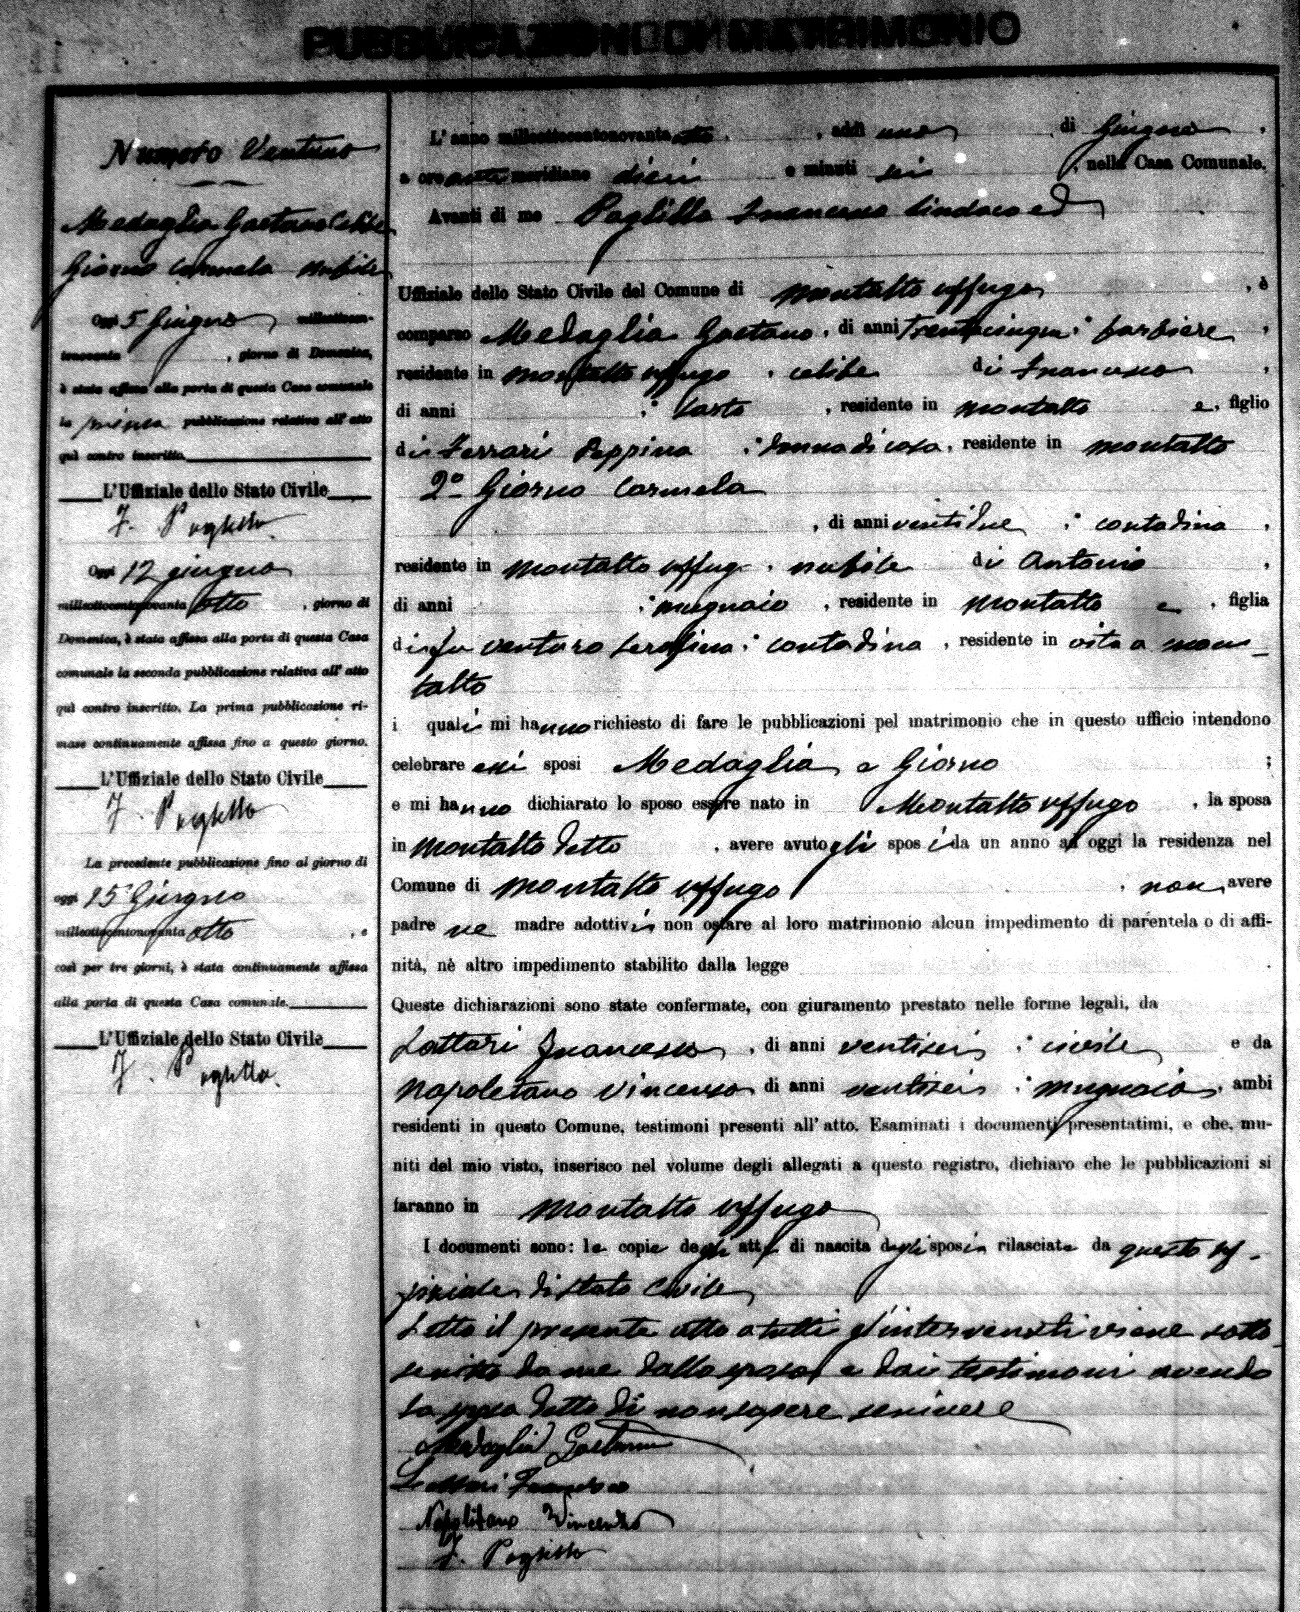 PUBBLICAZIONI DI MATRIMONIO
Numero Ventuno
Medaglia Gaetano Celibe
Giorno Carmela nubile
Oggi 5 Giugno millottocen-
tonovanta , giorno di Domenica,
è stata affissa alla porta di questa Casa comunale
la prima pubblicazione relativa all'atto
quì contro inscritto.
L'Uffiziale dello Stato Civile
F.
Oggi 12 giugno
milleottocentonovanta otto , giorno di
Domenica, è stata affissa alla porta di questa Casa
comunale la seconda pubblicazione relativa all'atto
quì contro inscritto. La prima pubblicazione ri-
mase continuamente affissa fino a questo giorno.
L'Uffiziale dello Stato Civile
F.
La precedente pubblicazione fino al giorno di
oggi 15 Giugno
milleottocentonovanta otto , e
così per tre giorni, è stata continuamente affissa
alla porta di questa Casa comunale.
L'Uffiziale dello Stato Civile
F.
L'anno milleottocentonovanta otto , addì uno di Giugno ,
a ore anti meridiane dieci e minuti sei , nella Casa Comunale.
Avanti di me Francesco Sindaco ed
Uffiziale dello Stato Civile del Comune di Montalto Uffugo , è
comparso Medaglia Gaetano , di anni trentacinque : barbiere ,
residente in Montalto Uffugo , celibe di Francesco ,
di anni : sarto , residente in Montalto e , figlio
di Ferrari Peppina : donna di casa , residente in Montalto
2º Giorno Carmela
, di anni ventidue : contadina ,
residente in Montalto Uffugo , nubile di Antonio ,
di anni : mugnaio , residente in Montalto e , figlia
di fu Venturo Serafina : contadina , residente in vita a Mon-
talto
i quali mi hanno richiesto di fare le pubblicazioni pel matrimonio che in questo ufficio intendono
celebrare essi sposi Medaglia e Giorno ;
e mi hanno dichiarato lo sposo essere nato in Montalto Uffugo , la sposa
in Montalto detto , avere avuto gli sposi da un anno ad oggi la residenza nel
Comune di Montalto Uffugo , non avere
padre ne madre adottivi non ostare al loro matrimonio alcun impedimento di parentela o di affi-
nità, nè altro impedimento stabilito dalla legge
Queste dichiarazioni sono state confermate, con giuramento prestato nelle forme legali, da
Lattari Francesco , di anni ventisei : civile e da
Napoletano Vincenzo di anni ventisei : mugnaio , ambi
residenti in questo Comune, testimoni presenti all'atto. Esaminati i documenti presentatimi, e che, mu-
niti del mio visto, inserisco nel volume degli allegati a questo registro, dichiaro che le pubblicazioni si
faranno in Montalto Uffugo
I documenti sono: le copie degli atti di nascita degli sposi rilasciate da questo uf-
fiziale di stato Civile
Letto il presente atto a tutti gl'intervenuti viene sotto
scritto da me dallo sposo e dai testimoni avendo
la sposa detto di non sapere scrivere
Medaglia Gaetano
Lattari Francesco
Napolitano Vincenzo
F.